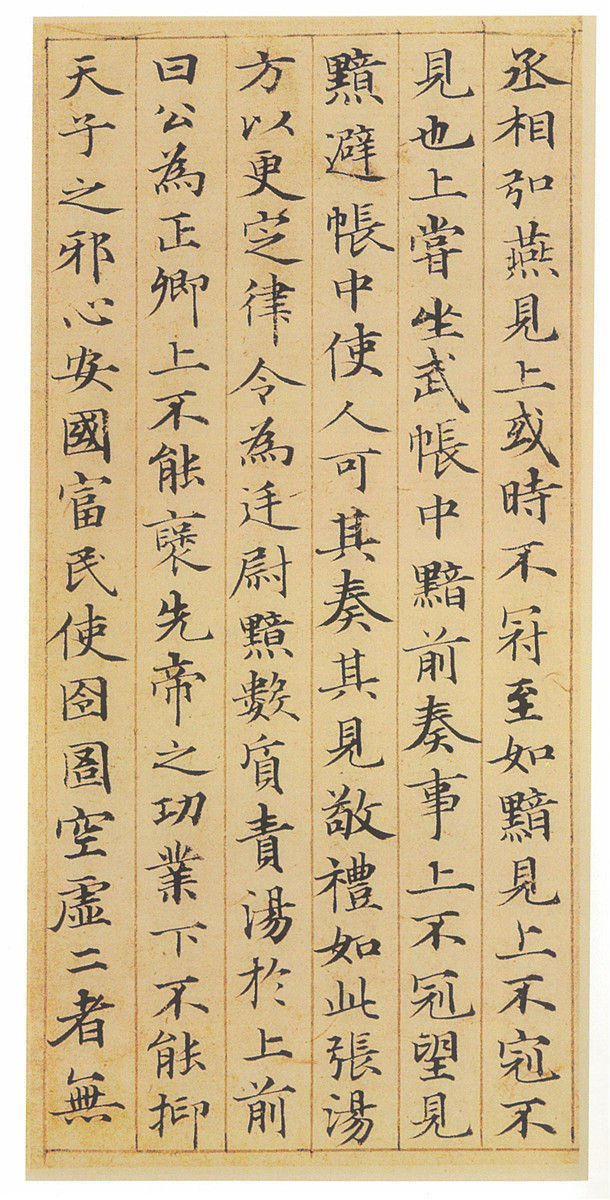 丞相弘燕見上或時不冠至如黯見上不冠不
見也上嘗坐武帳中黯前奏事上不冠望見
黯避帳中使人可其奏其見敬禮如此張湯
方以更定律令為廷尉黯數質責湯於上前
曰公為正卿上不能襃先帝之功業下不能抑
天子之邪心安國富民使囹圄空虛二者無